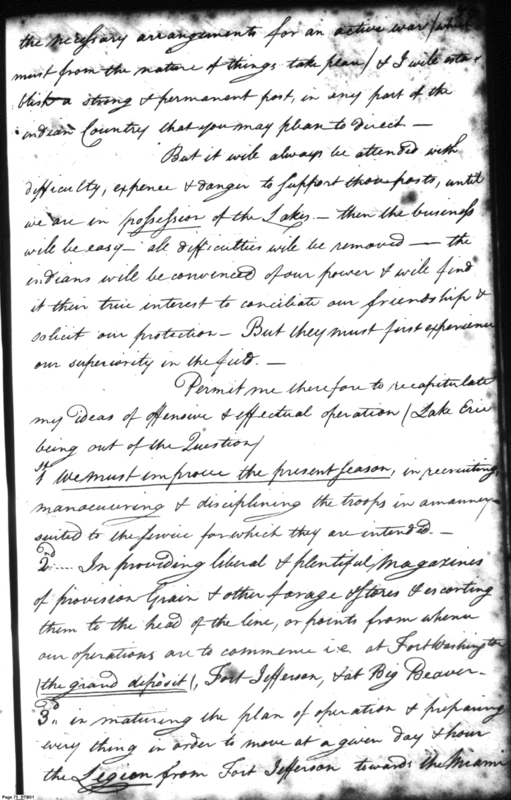 the necessary arrangements for an active war (which
must from the nature of things take place) & I will esta-
blish a strong & permanent post, in any part of the
indian Country that you may please to direct —
But it will always be attended with
difficulty, expence & danger to support those posts, until
we are in possession of the Lakes — then the business
will be easy — all difficulties will be removed — the
indians will be convinced of our power & will find
it their true interest to conciliate our friendship &
solicit our protection — But they must first experience
our superiority in the field. —
Permit me therefore to recapitulate
my ideas of offensive & effectual operation (Lake Erie
being out of the Question)
1st We must improve the present season, in recruiting,
manoeuvering & disciplining the troops in a manner
suited to the service for which they are intended. —
2nd .... In providing liberal & plentiful Magazines
of provision Grain & other forage Stores & escorting
them to the head of the line, or points from whence
our operations are to commence i.e. at Fort Washington
(the grand deposit), Fort Jefferson, & at Big Beaver —
3d in maturing the plan of operation & preparing
every thing in order to move at a given day & hour
the Legion from Fort Jefferson towards the Miami
Page 73 DTB01